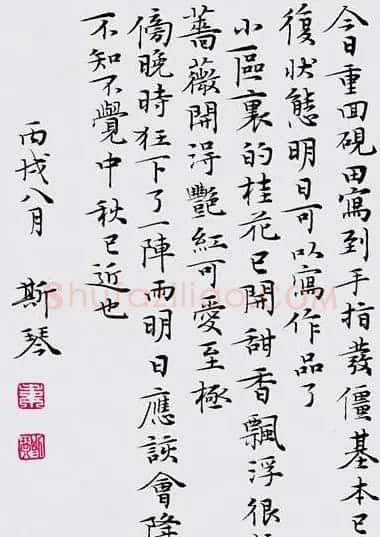 今日重回硯田寫到手指發僵基本已
復狀態明日可以寫作品了
小區裏的桂花已開甜香飄浮很
薔薇開得艷紅可愛至極
傍晚時狂下了一陣雨明日應該會降
不知不覺中秋已近也
丙戌八月 斯琴
Shufaziliao.COM